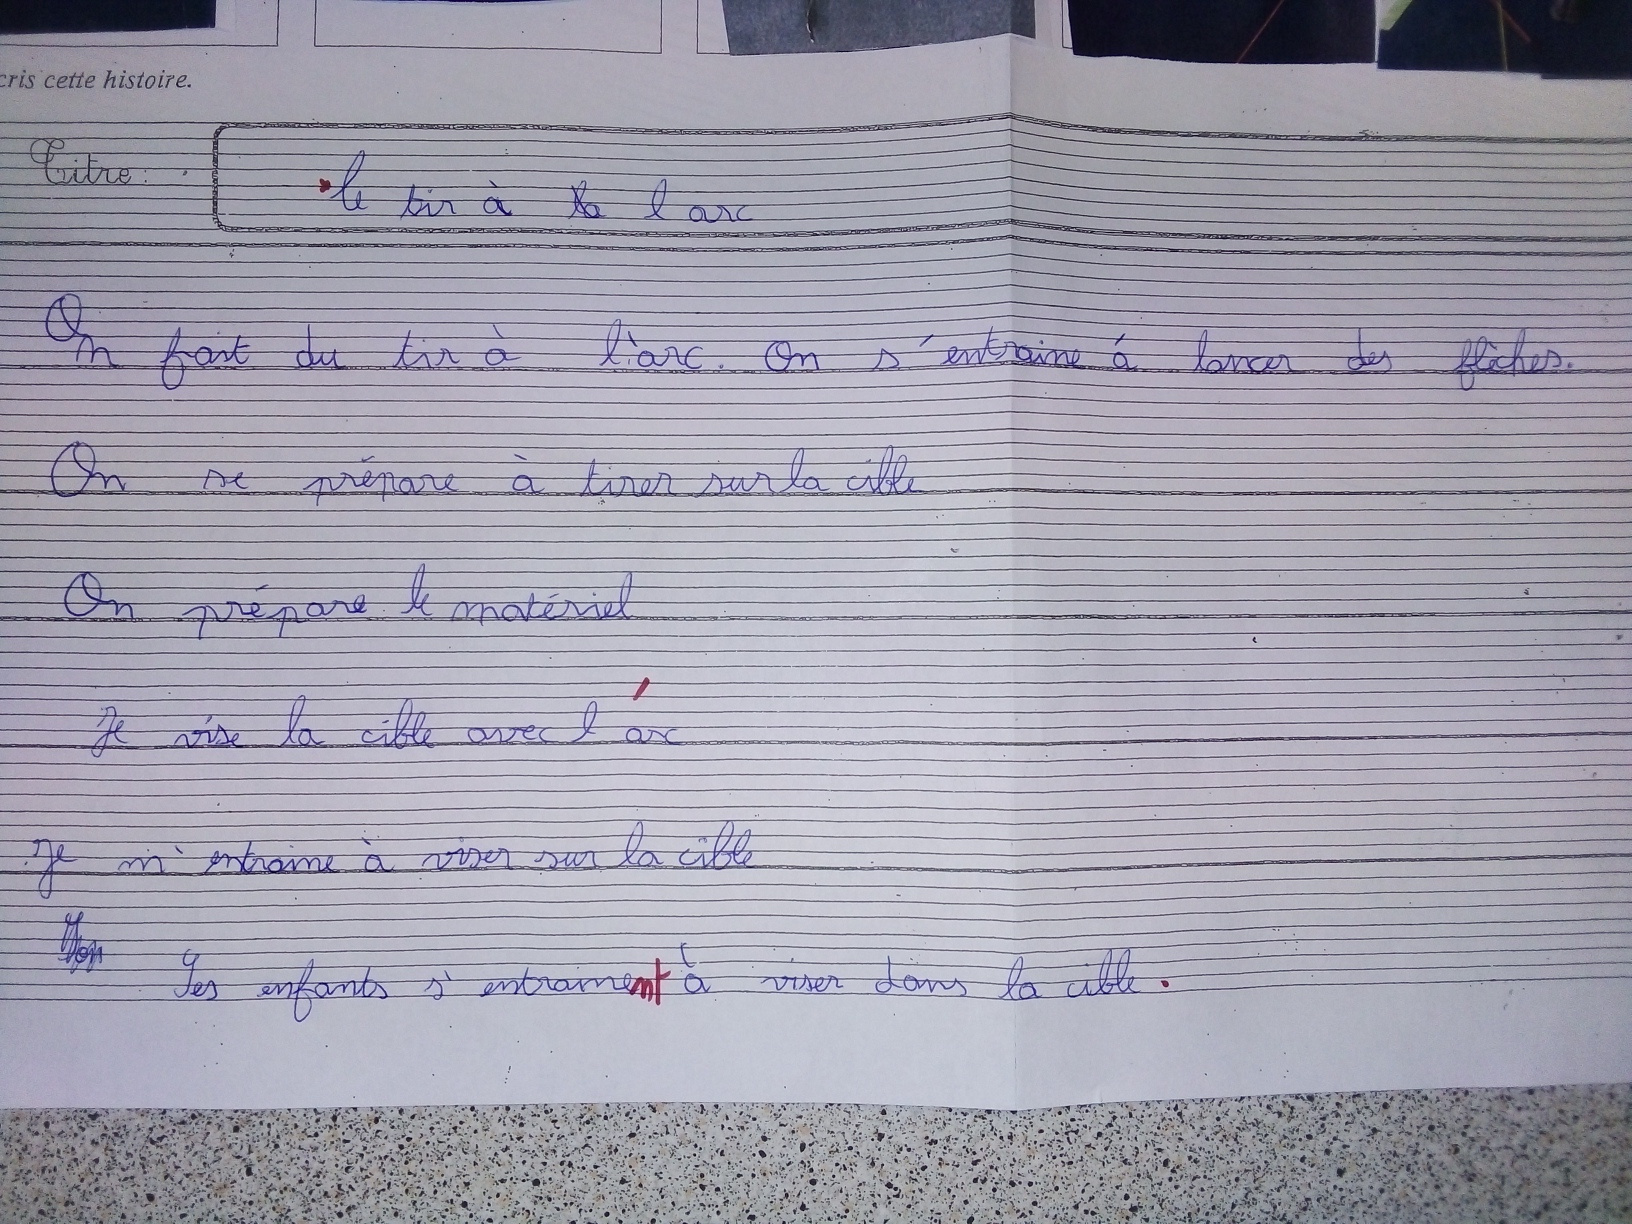 cris cette histoire.
Titre: le tir à la l arc
On fait du tir à l'arc. On s'entraine à lancer des flèches.
On se prépare à tirer sur la cible
On prépare le matériel
Je vise la cible avec l'arc
Je m'entraine à viser sur la cible
Les enfants s'entrainent à viser dans la cible.